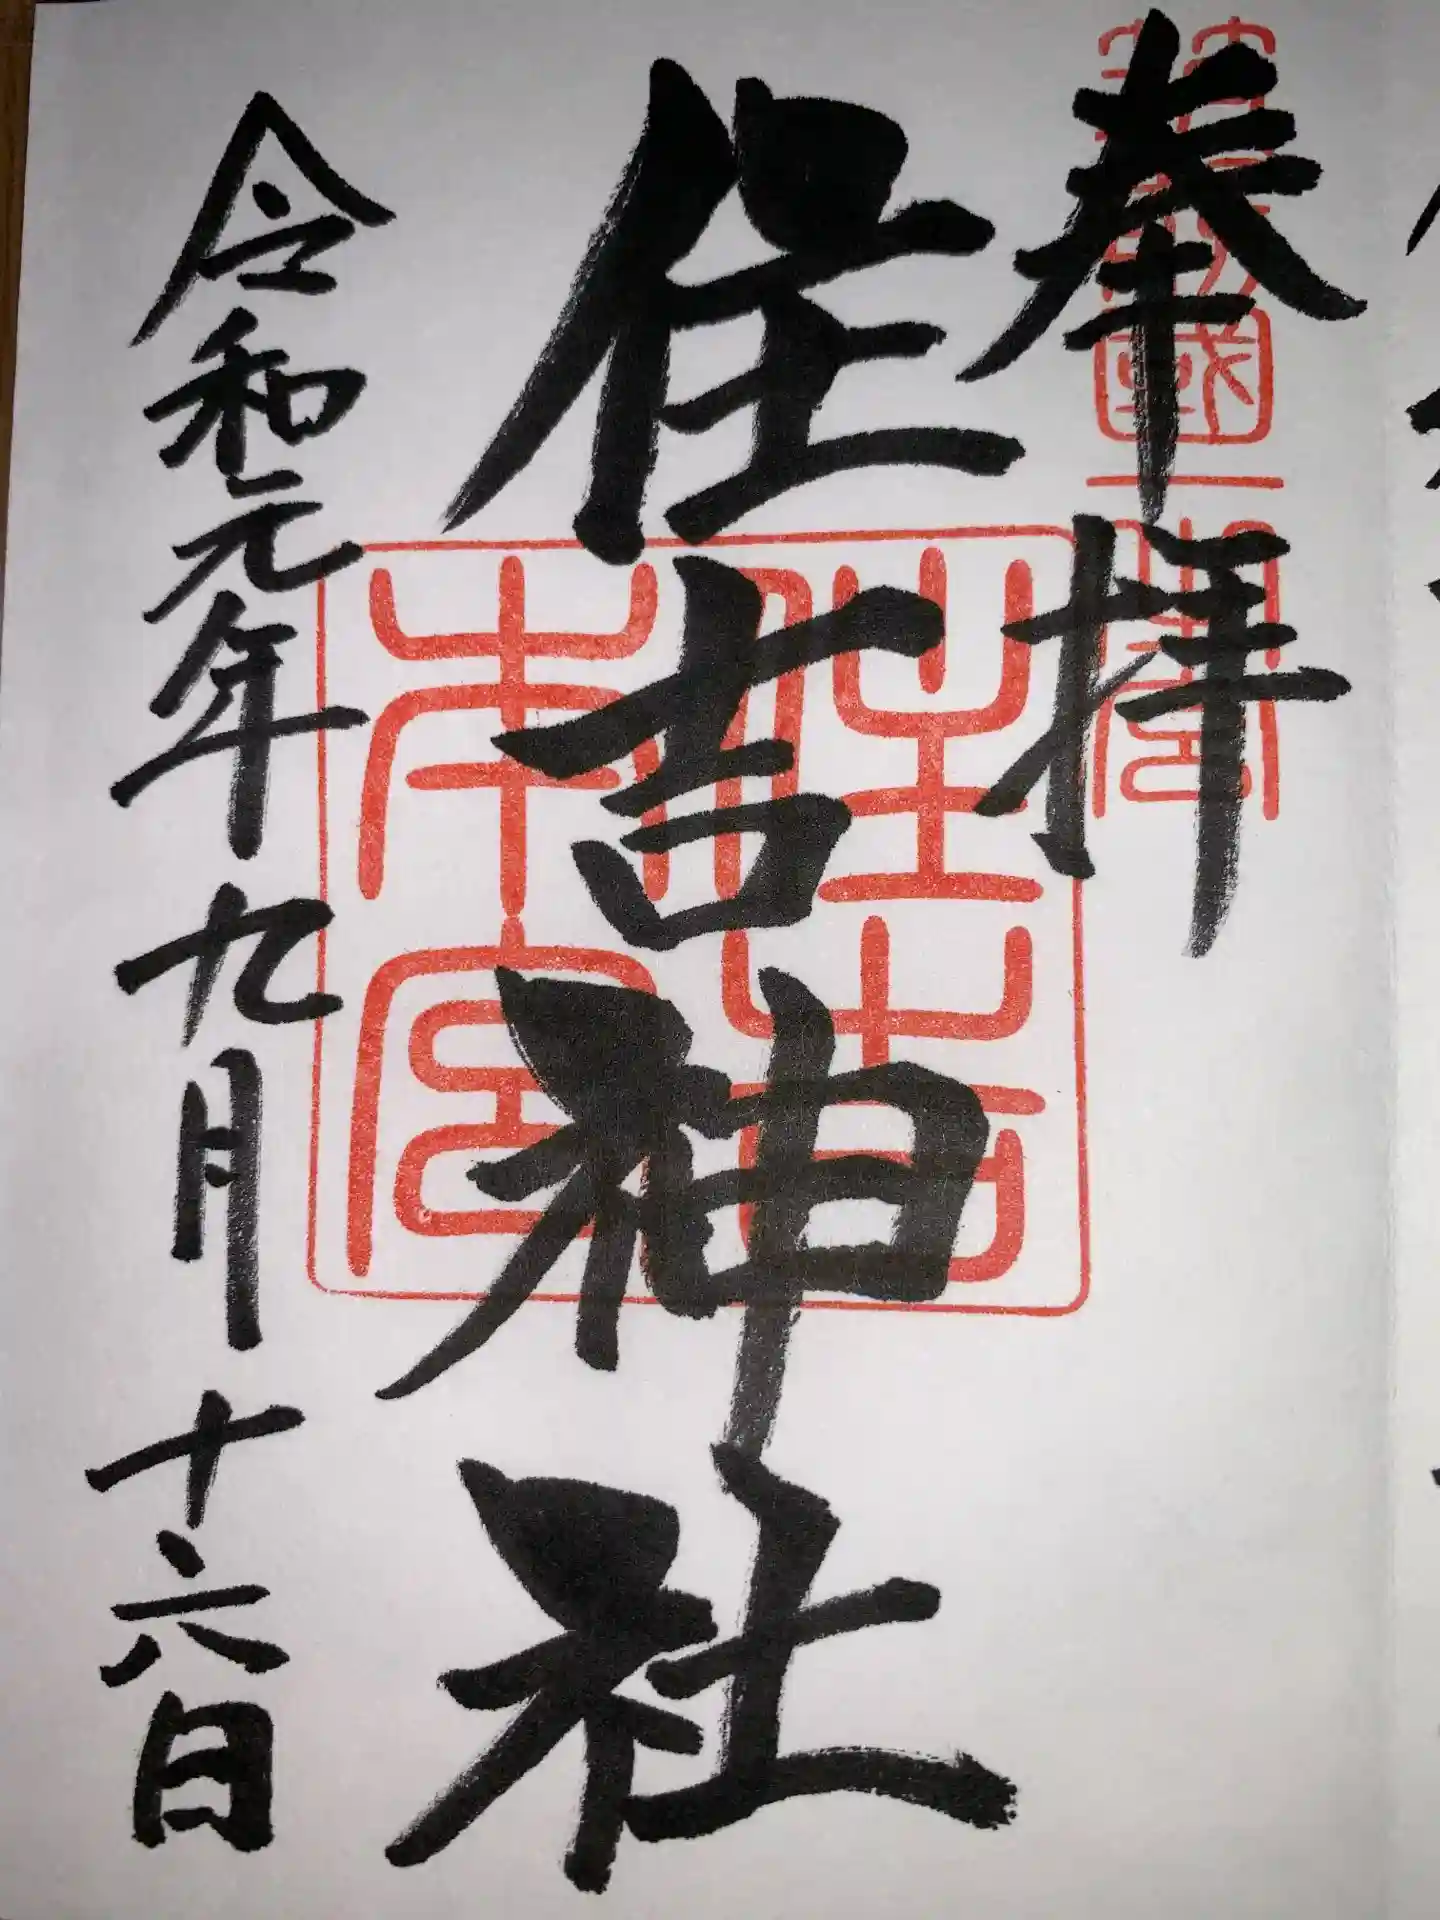 奉拝
筑前國一之宮
住吉神社
住吉本宮
令和元年九月十六日